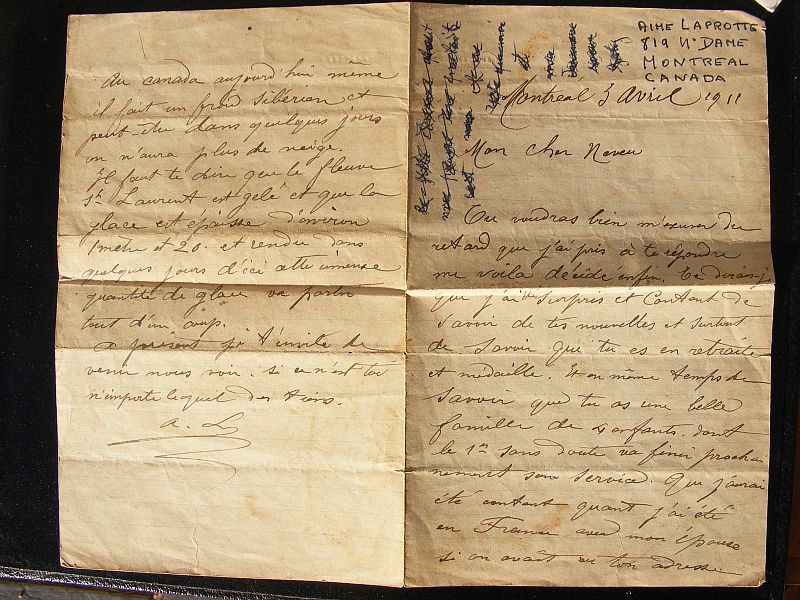 AIME LAPROTTE
819 Nᵉ DAME
MONTREAL
CANADA
Montreal 3 Avril 1911
Mon cher Neveu
Tu voudras bien m'excuser du
retard que j'ai pris à te répondre
me voila décidé enfin. Te dirais-je
que j'ai été surpris et content de
savoir de tes nouvelles et surtout
de savoir que tu es en retraite
et médaille. Et en même temps de
savoir que tu as une belle
famille de 4 enfants. dont
le 1ᵉʳ sans doute va finir prochai
nement son service. Que j'aurai
été content quant j'ai été
en France avec mon épouse
si on avait eu ton adresse
Au canada aujourd'hui même
il fait un froid sibérien et
peut-être dans quelques jours
on n'aura plus de neige.
Il faut te dire que le fleuve
St Laurent est gelé et que la
glace est épaisse d'environ
1 mètre et 20. et rendu dans
quelques jours d'ici cette imense
quantité de glace va partir
tout d'un coup.
A présent je t'invite de
venir nous voir. si ce n'est toi
n'importe lequel des tiens.
A. L